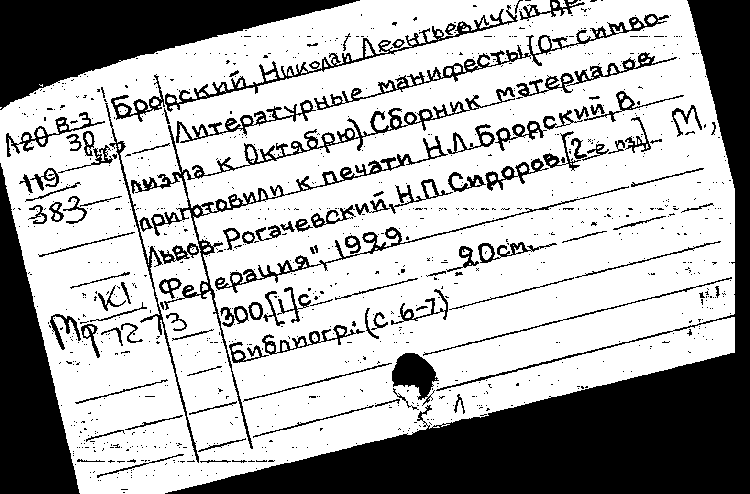 Бродский, Николай Леонтьевич и др.
Литературные манифесты. (От симво-
лизма к Октябрю). Сборник материалов
приготовили к печати Н.Л. Бродский, В.
Львов-Рогачевский, Н.П. Сидоров. [2-е изд.] М.,
"Федерация", 1929.
300, [1] с. 20 см.
Библиогр.: (с. 6-7.)
А20 В-3
30
119
383
КІ
Мф 7273